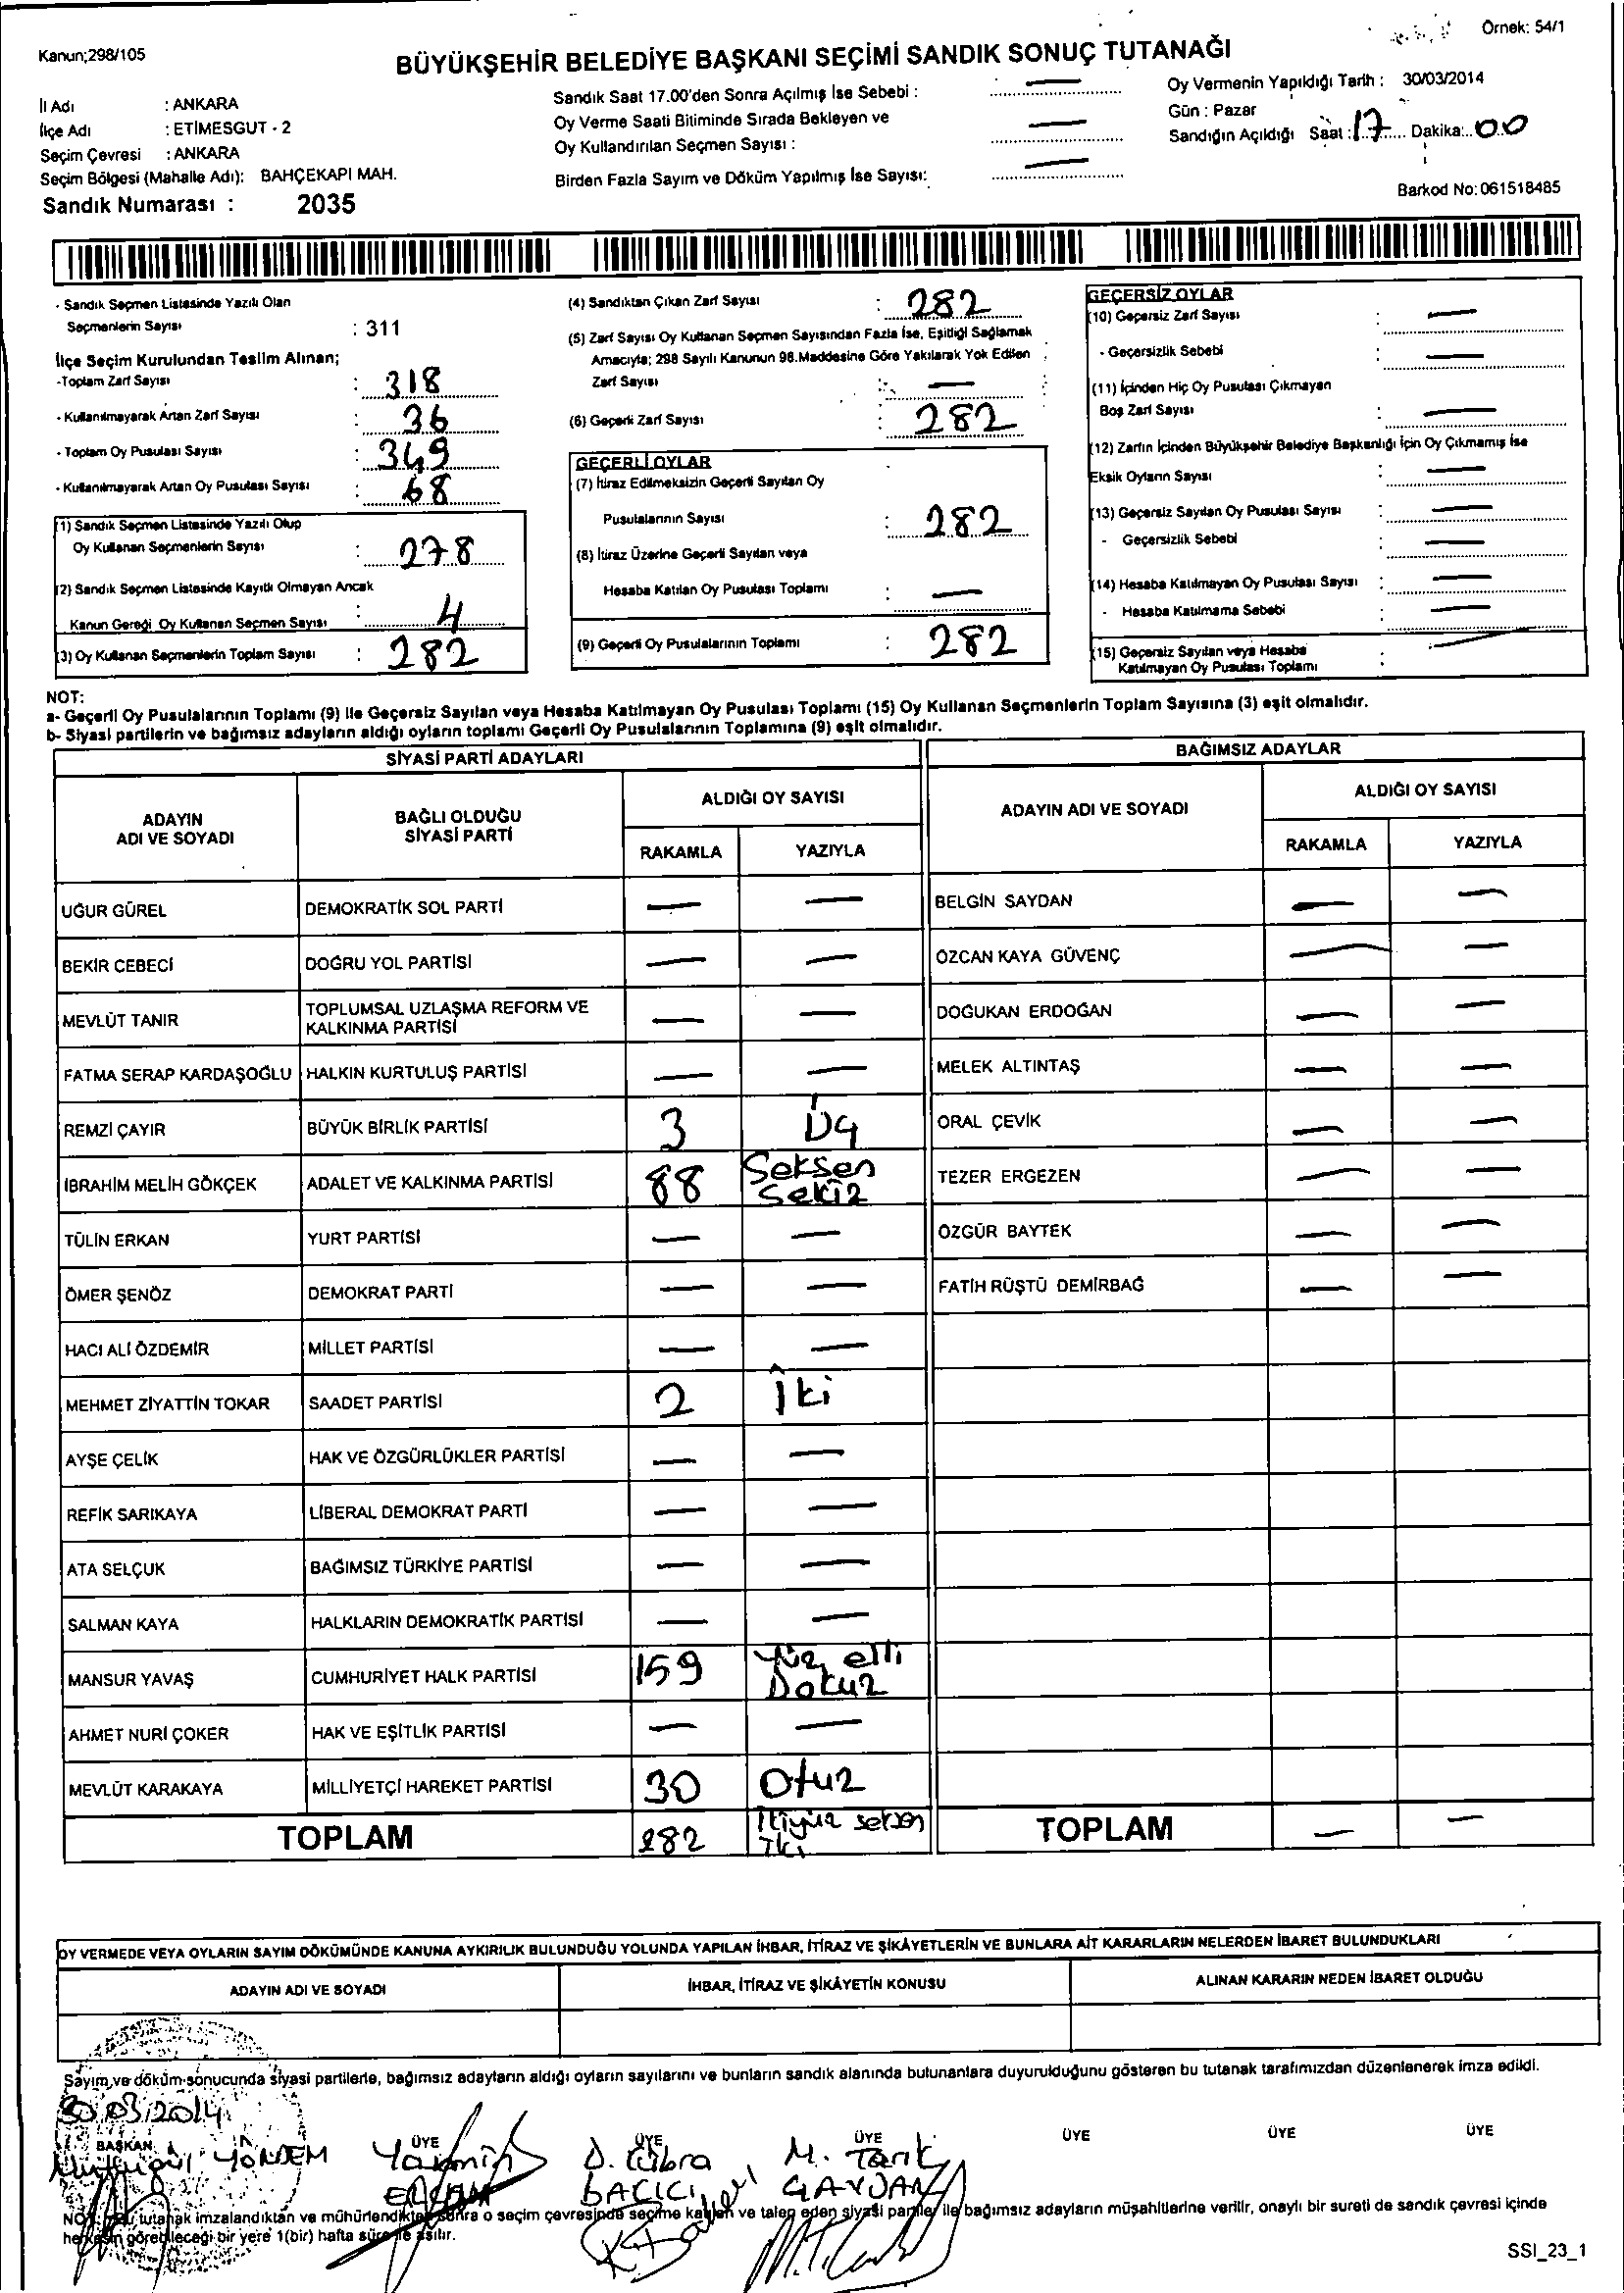 Örnek: 54/1
Kanun;298/105
BÜYÜKŞEHİR BELEDİYE BAŞKANI SEÇİMİ SANDIK SONUÇ TUTANAĞI
İl Adı : ANKARA
İlçe Adı : ETİMESGUT - 2
Seçim Çevresi : ANKARA
Seçim Bölgesi (Mahalle Adı): BAHÇEKAPI MAH.
Sandık Numarası : 2035
Sandık Saat 17.00'den Sonra Açılmış İse Sebebi : —
Oy Verme Saati Bitiminde Sırada Bekleyen ve
Oy Kullandırılan Seçmen Sayısı : —
Birden Fazla Sayım ve Döküm Yapılmış İse Sayısı: —
Oy Vermenin Yapıldığı Tarih : 30/03/2014
Gün : Pazar
Sandığın Açıldığı Saat : 17 Dakika: 00
Barkod No: 061518485
- Sandık Seçmen Listesinde Yazılı Olan
Seçmenlerin Sayısı : 311
İlçe Seçim Kurulundan Teslim Alınan;
-Toplam Zarf Sayısı : 318
- Kullanılmayarak Artan Zarf Sayısı : 36
- Toplam Oy Pusulası Sayısı : 349
- Kullanılmayarak Artan Oy Pusulası Sayısı : 68
(1) Sandık Seçmen Listesinde Yazılı Olup
Oy Kullanan Seçmenlerin Sayısı : 278
(2) Sandık Seçmen Listesinde Kayıtlı Olmayan Ancak
Kanun Gereği Oy Kullanan Seçmen Sayısı : 4
(3) Oy Kullanan Seçmenlerin Toplam Sayısı : 282
(4) Sandıktan Çıkan Zarf Sayısı : 282
(5) Zarf Sayısı Oy Kullanan Seçmen Sayısından Fazla İse, Eşitliği Sağlamak
Amacıyla; 298 Sayılı Kanunun 98.Maddesine Göre Yakılarak Yok Edilen
Zarf Sayısı : —
(6) Geçerli Zarf Sayısı : 282
GEÇERLİ OYLAR
(7) İtiraz Edilmeksizin Geçerli Sayılan Oy
Pusulalarının Sayısı : 282
(8) İtiraz Üzerine Geçerli Sayılan veya
Hesaba Katılan Oy Pusulası Toplamı : —
(9) Geçerli Oy Pusulalarının Toplamı : 282
GEÇERSİZ OYLAR
(10) Geçersiz Zarf Sayısı : —
- Geçersizlik Sebebi : —
(11) İçinden Hiç Oy Pusulası Çıkmayan
Boş Zarf Sayısı : —
(12) Zarfın İçinden Büyükşehir Belediye Başkanlığı İçin Oy Çıkmamış İse
Eksik Oyların Sayısı : —
(13) Geçersiz Sayılan Oy Pusulası Sayısı : —
- Geçersizlik Sebebi : —
(14) Hesaba Katılmayan Oy Pusulası Sayısı : —
- Hesaba Katılmama Sebebi : —
(15) Geçersiz Sayılan veya Hesaba
Katılmayan Oy Pusulası Toplamı : —
NOT:
a- Geçerli Oy Pusulalarının Toplamı (9) ile Geçersiz Sayılan veya Hesaba Katılmayan Oy Pusulası Toplamı (15) Oy Kullanan Seçmenlerin Toplam Sayısına (3) eşit olmalıdır.
b- Siyasi partilerin ve bağımsız adayların aldığı oyların toplamı Geçerli Oy Pusulalarının Toplamına (9) eşit olmalıdır.
SİYASİ PARTİ ADAYLARI
ADAYIN ADI VE SOYADI
BAĞLI OLDUĞU SİYASİ PARTİ
ALDIĞI OY SAYISI
RAKAMLA YAZIYLA
UĞUR GÜREL DEMOKRATİK SOL PARTİ — —
BEKİR CEBECİ DOĞRU YOL PARTİSİ — —
MEVLÜT TANIR TOPLUMSAL UZLAŞMA REFORM VE KALKINMA PARTİSİ — —
FATMA SERAP KARDAŞOĞLU HALKIN KURTULUŞ PARTİSİ — —
REMZİ ÇAYIR BÜYÜK BİRLİK PARTİSİ 3 Üç
İBRAHİM MELİH GÖKÇEK ADALET VE KALKINMA PARTİSİ 88 Seksen Sekiz
TÜLİN ERKAN YURT PARTİSİ — —
ÖMER ŞENÖZ DEMOKRAT PARTİ — —
HACI ALİ ÖZDEMİR MİLLET PARTİSİ — —
MEHMET ZİYATTİN TOKAR SAADET PARTİSİ 2 İki
AYŞE ÇELİK HAK VE ÖZGÜRLÜKLER PARTİSİ — —
REFİK SARIKAYA LİBERAL DEMOKRAT PARTİ — —
ATA SELÇUK BAĞIMSIZ TÜRKİYE PARTİSİ — —
SALMAN KAYA HALKLARIN DEMOKRATİK PARTİSİ — —
MANSUR YAVAŞ CUMHURİYET HALK PARTİSİ 159 Yüz elli Dokuz
AHMET NURİ ÇOKER HAK VE EŞİTLİK PARTİSİ — —
MEVLÜT KARAKAYA MİLLİYETÇİ HAREKET PARTİSİ 30 Otuz
TOPLAM 282 İkiyüz seksen İki
BAĞIMSIZ ADAYLAR
ADAYIN ADI VE SOYADI
ALDIĞI OY SAYISI
RAKAMLA YAZIYLA
BELGİN SAYDAN — —
ÖZCAN KAYA GÜVENÇ — —
DOĞUKAN ERDOĞAN — —
MELEK ALTINTAŞ — —
ORAL ÇEVİK — —
TEZER ERGEZEN — —
ÖZGÜR BAYTEK — —
FATİH RÜŞTÜ DEMİRBAĞ — —
TOPLAM — —
OY VERMEDE VEYA OYLARIN SAYIM DÖKÜMÜNDE KANUNA AYKIRILIK BULUNDUĞU YOLUNDA YAPILAN İHBAR, İTİRAZ VE ŞİKÂYETLERİN VE BUNLARA AİT KARARLARIN NELERDEN İBARET BULUNDUKLARI
ADAYIN ADI VE SOYADI
İHBAR, İTİRAZ VE ŞİKÂYETİN KONUSU
ALINAN KARARIN NEDEN İBARET OLDUĞU
Sayım ve döküm sonucunda siyasi partilerle, bağımsız adayların aldığı oyların sayılarını ve bunların sandık alanında bulunanlara duyurulduğunu gösteren bu tutanak tarafımızdan düzenlenerek imza edildi.
30.03.2014
BAŞKAN ÜYE ÜYE ÜYE ÜYE ÜYE ÜYE
YÖNDEM
D. Kübra BAĞCI
M. Tarık
NOT: Bu tutanak imzalandıktan ve mühürlendikten sonra o seçim çevresinde seçime katılan ve talep eden siyasi partiler ile bağımsız adayların müşahitlerine verilir, onaylı bir sureti de sandık çevresi içinde
herkesin görebileceği bir yere 1(bir) hafta süre ile asılır.
SSI_23_1